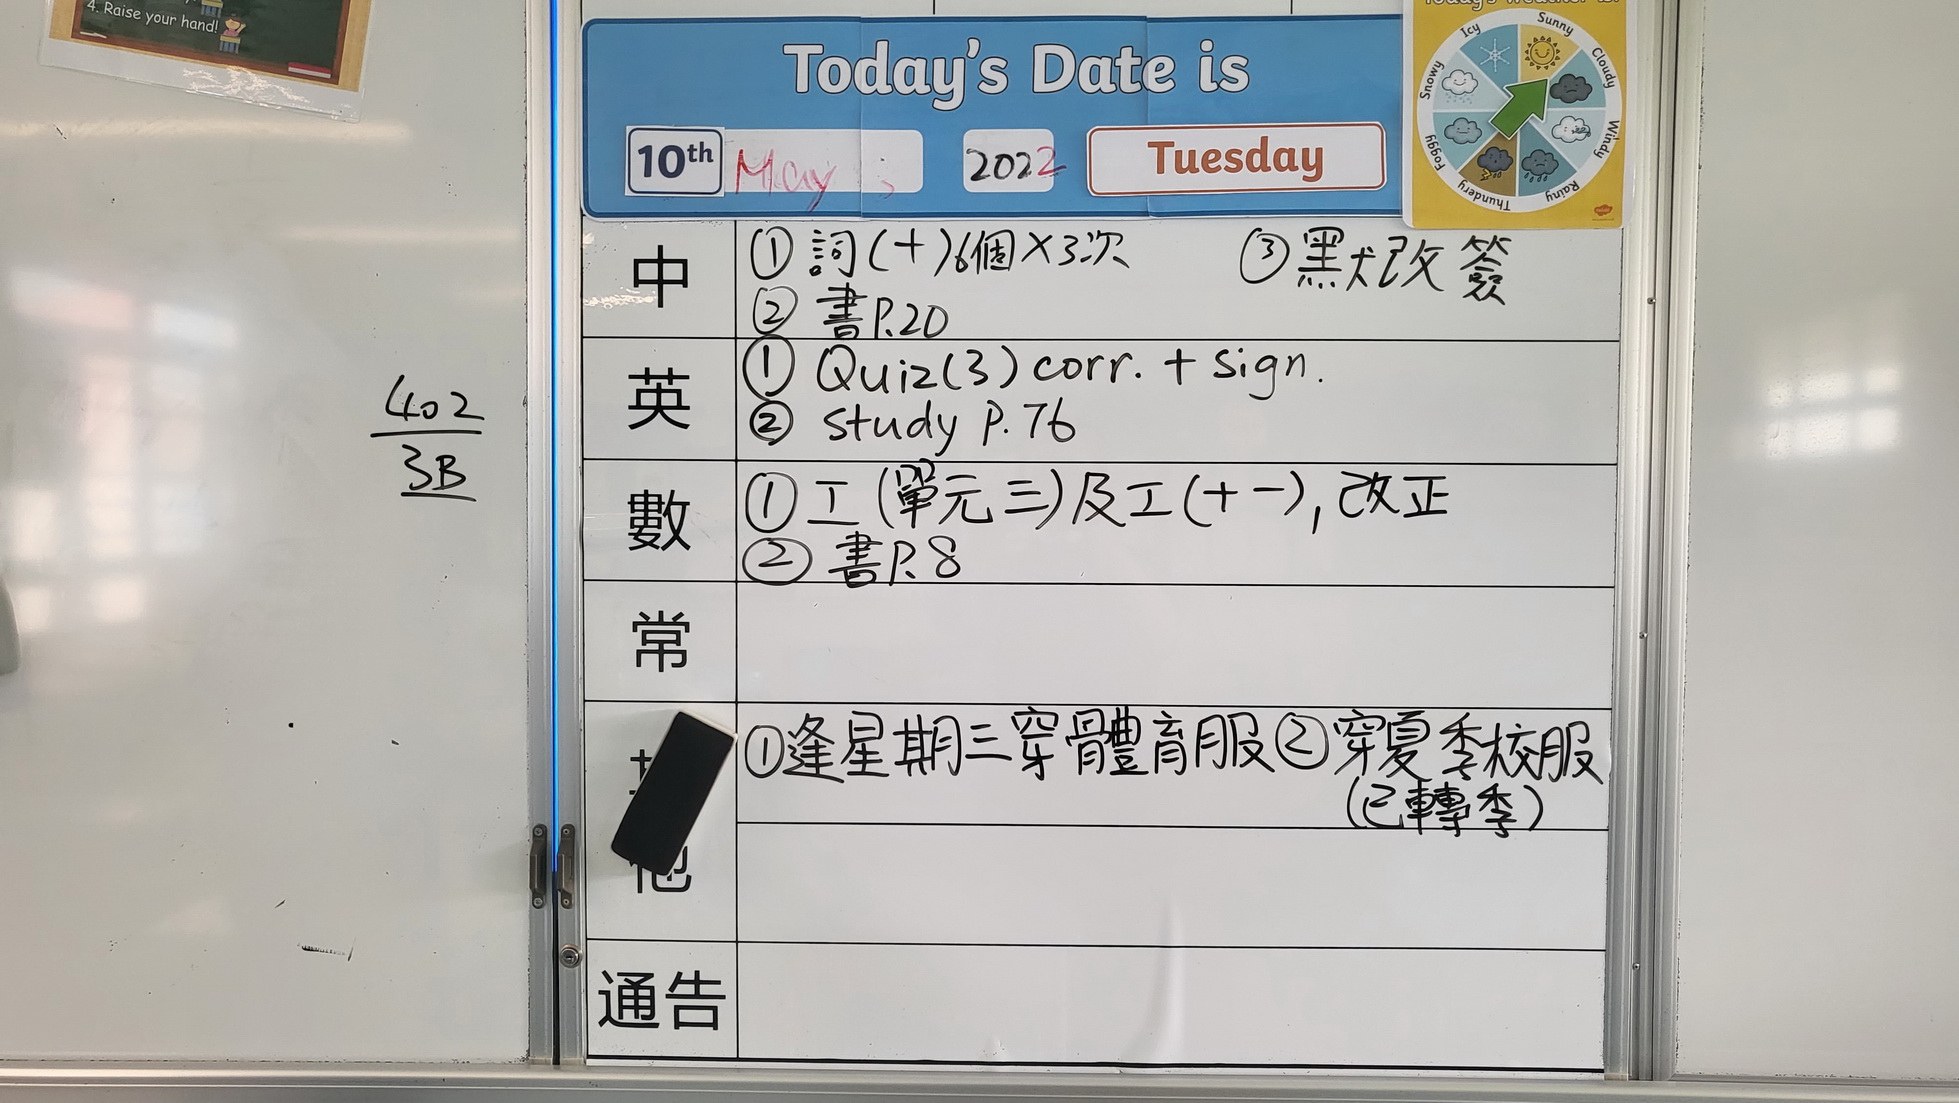 4. Raise your hand!
Today's Date is
10th May, 2022 Tuesday
Icy
Sunny
Cloudy
Windy
Rainy
Thundery
Foggy
Snowy
中
① 詞(十)6個×3次 ③默改簽
② 書P.20
英
① Quiz(3) corr. + sign.
② study P.76
數
① 工(單元三)及工(十一), 改正
② 書P.8
常
他
①逢星期三穿體育服 ②穿夏季校服
(已轉季)
通告
402
3B